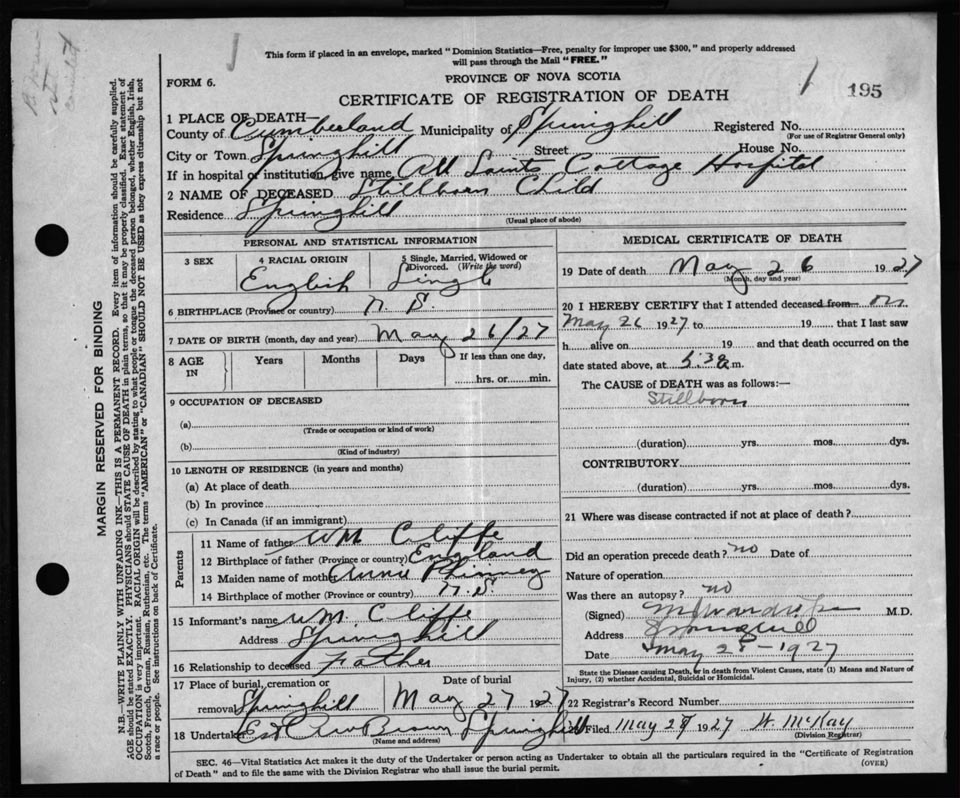 This form if placed in an envelope, marked "Dominion Statistics—Free, penalty for improper use $300," and properly addressed
will pass through the Mail "FREE."
FORM 6.
PROVINCE OF NOVA SCOTIA
CERTIFICATE OF REGISTRATION OF DEATH
195
1 PLACE OF DEATH—
County of Cumberland Municipality of Springhill Registered No.
(For use of Registrar General only)
City or Town Springhill Street House No.
If in hospital or institution, give name All Saints Cottage Hospital
2 NAME OF DECEASED Stillborn Child
Residence Springhill
(Usual place of abode)
PERSONAL AND STATISTICAL INFORMATION
3 SEX
4 RACIAL ORIGIN
English
5 Single, Married, Widowed or Divorced. (Write the word)
Single
6 BIRTHPLACE (Province or country) N. S.
7 DATE OF BIRTH (month, day and year) May 26/27
8 AGE IN
Years Months Days
If less than one day,
hrs. or min.
9 OCCUPATION OF DECEASED
(a)
(Trade or occupation or kind of work)
(b)
(Kind of industry)
10 LENGTH OF RESIDENCE (in years and months)
(a) At place of death
(b) In province
(c) In Canada (if an immigrant)
Parents
11 Name of father Wm Cliffe
12 Birthplace of father (Province or country) England
13 Maiden name of mother Anna Phinney
14 Birthplace of mother (Province or country) N. S.
15 Informant's name Wm Cliffe
Address Springhill
16 Relationship to deceased Father
17 Place of burial, cremation or removal Springhill
Date of burial
May 27 1927
18 Undertaker Brown Springhill
(Name and address)
MEDICAL CERTIFICATE OF DEATH
19 Date of death May 26 1927
(Month, day and year)
20 I HEREBY CERTIFY that I attended deceased from on
May 26 1927 to 19 that I last saw
h alive on 19 and that death occurred on the
date stated above, at 5:30 a.m.
The CAUSE of DEATH was as follows:—
Stillborn
(duration) yrs. mos. dys.
CONTRIBUTORY
(duration) yrs. mos. dys.
21 Where was disease contracted if not at place of death?
Did an operation precede death? no Date of
Nature of operation
Was there an autopsy? no
(Signed) M.D.
Address Springhill
Date May 28 - 1927
State the Disease causing Death, or in death from Violent Causes, state (1) Means and Nature of
Injury, (2) whether Accidental, Suicidal or Homicidal.
22 Registrar's Record Number
23 Filed May 29 1927 W. McKay
(Division Registrar)
SEC. 46—Vital Statistics Act makes it the duty of the Undertaker or person acting as Undertaker to obtain all the particulars required in the "Certificate of Registration
of Death" and to file the same with the Division Registrar who shall issue the burial permit.
(OVER)
MARGIN RESERVED FOR BINDING
N.B.—WRITE PLAINLY WITH UNFADING INK—THIS IS A PERMANENT RECORD. Every item of information should be carefully supplied.
AGE should be stated EXACTLY. PHYSICIANS should STATE CAUSE OF DEATH in plain terms, so that it may be properly classified. Exact statement of
OCCUPATION is very important. RACIAL ORIGIN will be described by stating to what people or tongue the deceased person belonged, whether English, Irish,
Scotch, French, German, Russian, Ruthenian, etc. The terms "AMERICAN" or "CANADIAN" SHOULD NOT BE USED as they express citizenship but not
a race or people. See instructions on back of Certificate.